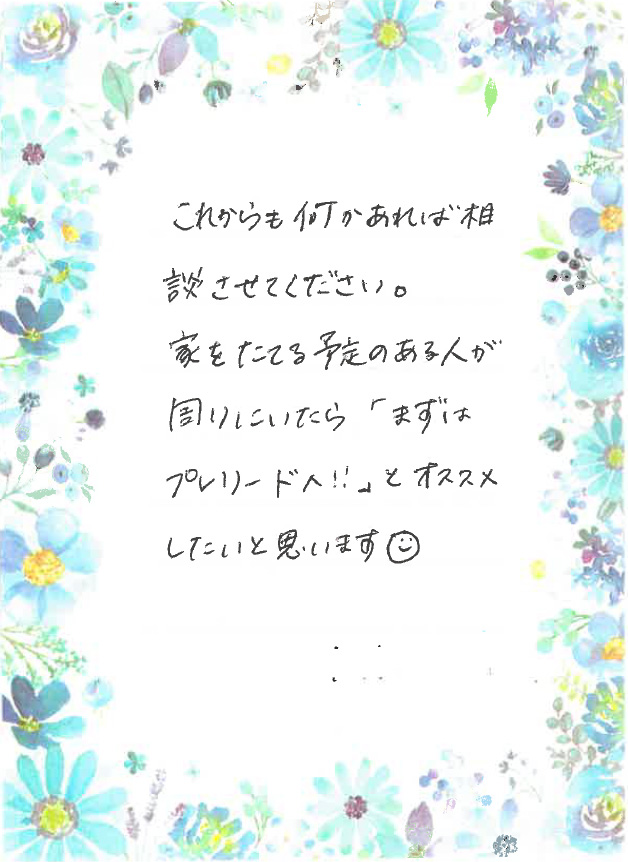 これからも何かあれば相
談させてください。
家をたてる予定のある人が
周りにいたら「まずは
プレリードへ!!」とオススメ
したいと思います☺